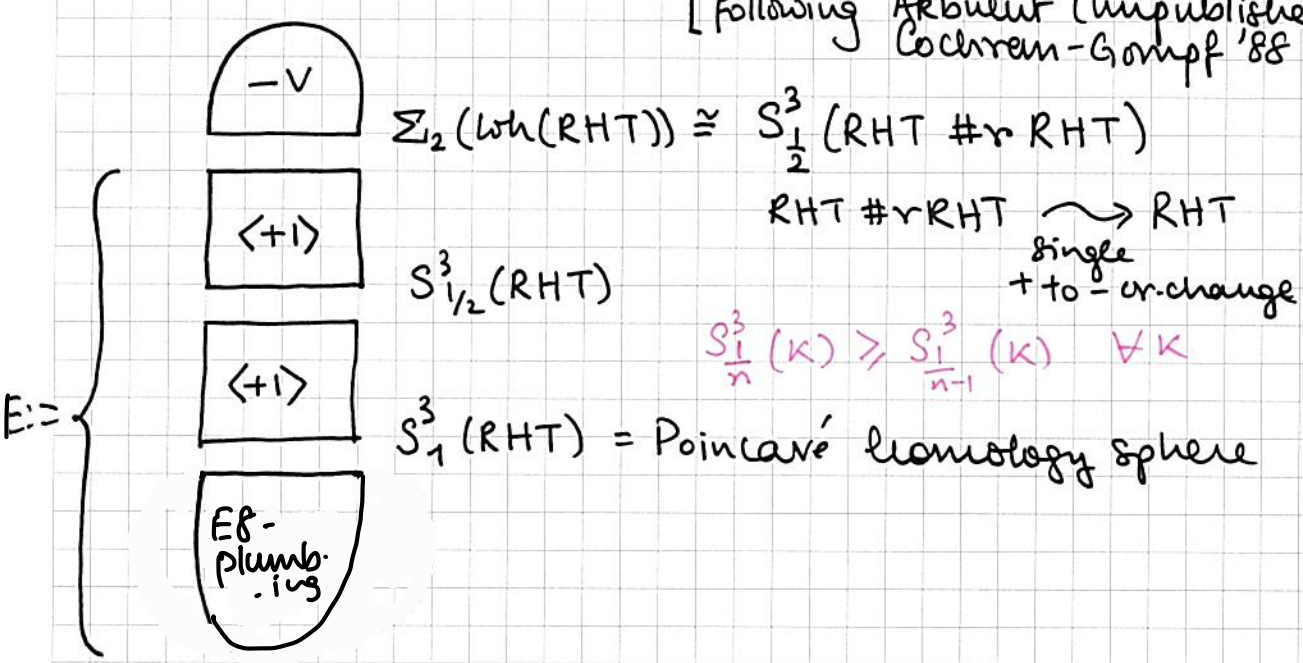 [Following Akbulut (unpublishe
Cochran-Gompf '88
-V
Σ₂(Wh(RHT)) ≅ S³_{1/2}(RHT #r RHT)
RHT #rRHT ⇝ RHT
single
+ to - cr.change
<+1>
S³_{1/2}(RHT)
S³_{1/n}(K) ⩾ S³_{1/(n-1)}(K) ∀K
<+1>
E:=
S³_1(RHT) = Poincaré homology sphere
E8-
plumb.
.ing